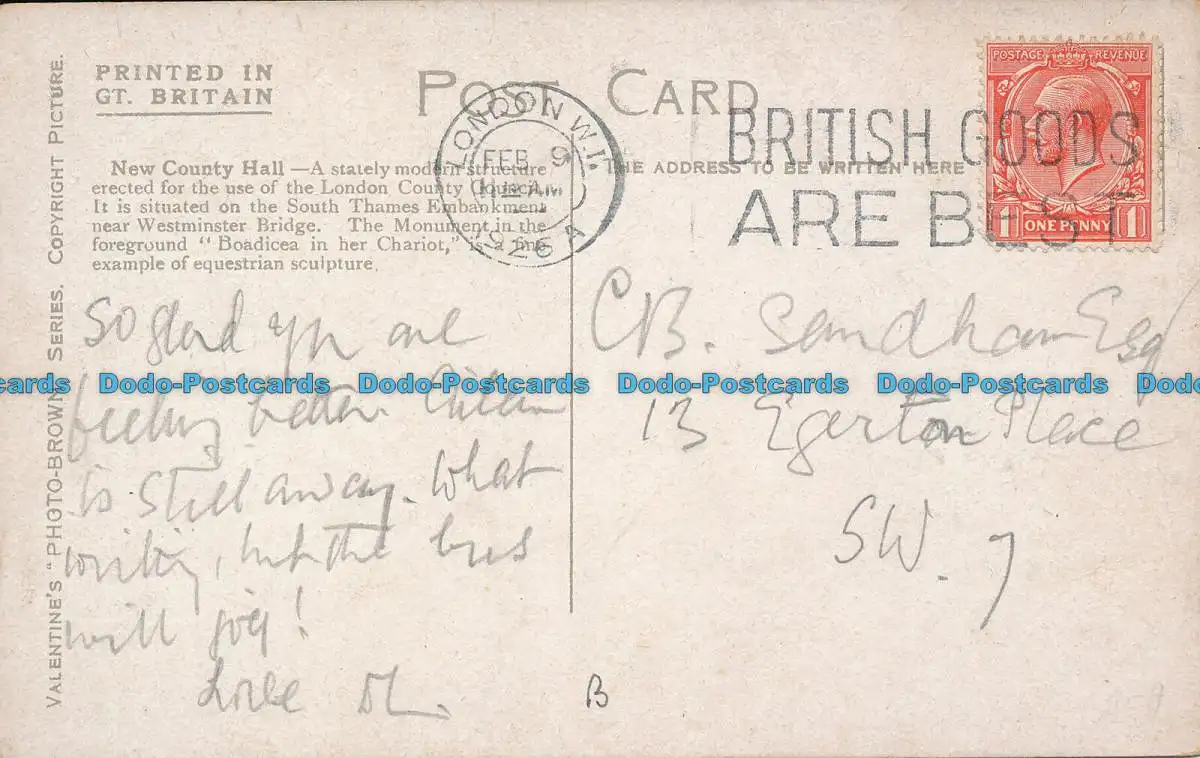 PRINTED IN
GT. BRITAIN
POST CARD
New County Hall —A stately modern structure
erected for the use of the London County Council.
It is situated on the South Thames Embankment
near Westminster Bridge. The Monument in the
foreground "Boadicea in her Chariot," is a fine
example of equestrian sculpture.
THE ADDRESS TO BE WRITTEN HERE
VALENTINE'S "PHOTO-BROWN" SERIES. COPYRIGHT PICTURE.
LONDON W.1.
FEB 9
11 AM
1926
A
BRITISH GOODS
ARE BEST
POSTAGE REVENUE
1 ONE PENNY 1
So glad you are
feeling better.
is still away. What
writing, but the bus
will jog!
Love
C.B. Sandham Esq
13 Egerton Place
SW. 7
B
cards Dodo-Postcards Dodo-Postcards Dodo-Postcards Dodo-Postcards Dodo-